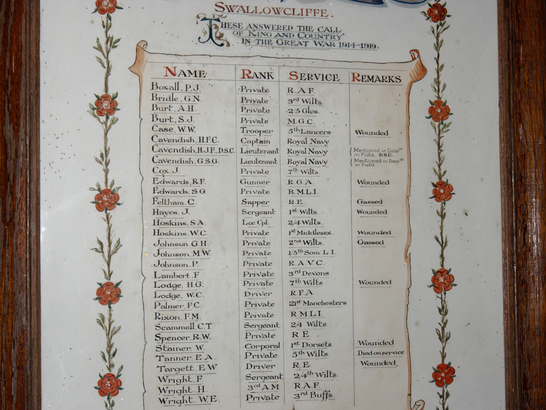 SWALLOWCLIFFE.
THESE ANSWERED THE CALL
OF KING AND COUNTRY
IN THE GREAT WAR 1914-1919.
NAME RANK SERVICE REMARKS
Boxall, P.J. Private R.A.F.
Bridle, G.N. Private 3rd Wilts.
Burt, A.H. Private 2.5 Glos.
Burt, S.J. Private M.G.C.
Case, W.W. Trooper 5th Lancers Wounded
Cavendish, H.F.C. Captain Royal Navy
Cavendish, H.J.F. D.S.C. Lieutenant Royal Navy Mentioned in Desp. in Field. D.S.C.
Cavendish, G.S.G. Lieutenant Royal Navy Mentioned in Desp. in Field
Cox, J. Private 7th Wilts.
Edwards, R.F. Gunner R.G.A. Wounded
Edwards, S.G. Private R.M.L.I.
Feltham, C. Sapper R.E. Gassed
Hayes, J. Sergeant 1st Wilts. Wounded
Hoskins, S.A. Lce Cpl. 2/4 Wilts.
Hoskins, W.C. Private 1st Middlesex Wounded
Johnson, G.H. Private 2nd Wilts. Gassed
Johnson, M.W. Private 13th Som. L.I.
Johnson, P. Private R.A.V.C.
Lambert, F. Private 3rd Devons
Lodge, H.G. Private 7th Wilts Wounded
Lodge, W.C. Driver R.F.A.
Palmer, F.C. Private 21st Manchesters
Rixon, F.M. Private R.M.L.I.
Scammell, C.T. Sergeant 2/4 Wilts.
Spencer, R.W. Private R.E.
Stainer, W. Corporal 1st Dorsets Wounded
Tanner, E.A. Private 5th Wilts Died on service
Targett, E.W. Driver R.E. Wounded.
Wright, F. Sergeant 2.4th Wilts.
Wright, H. 3rd A.M. R.A.F.
Wright, W.E. Private 3rd Buffs.